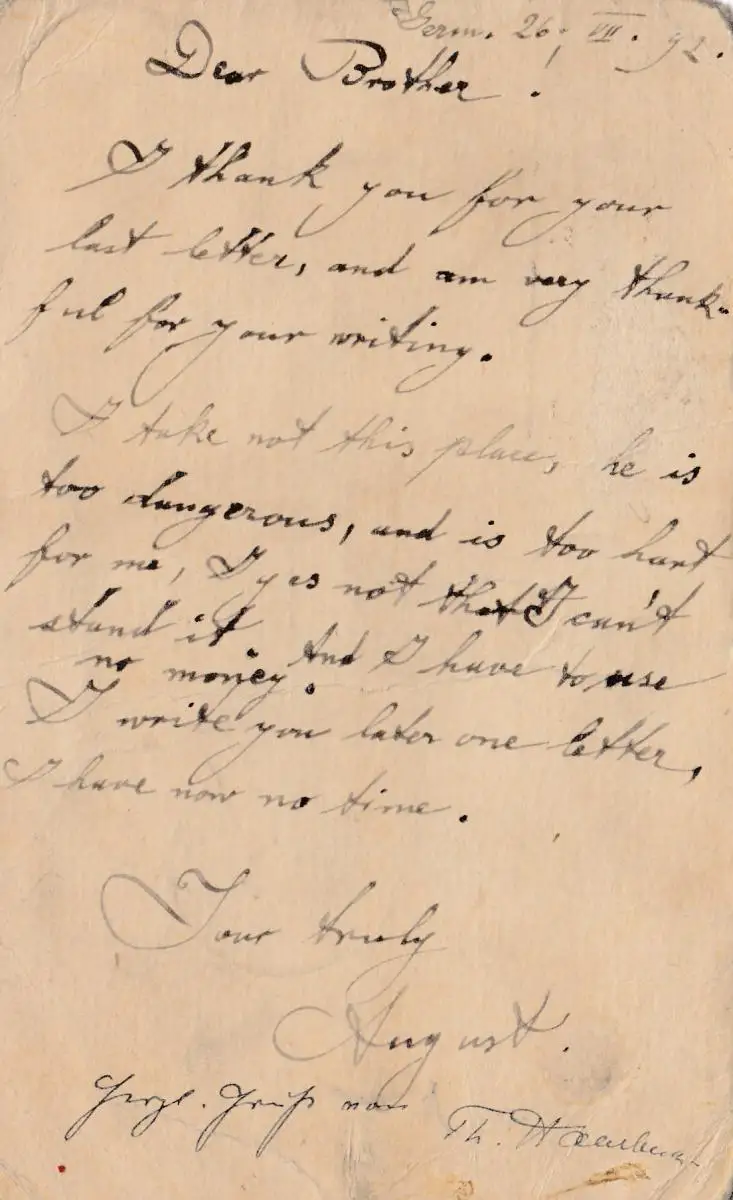 Germ. 26. VII. 92.
Dear Brother!
I thank you for your
last letter, and am very thank-
ful for your writing.
I take not this place, he is
too dangerous, and is too hart
for me, I yes not that I can't
stand it. And I have to use
no money.
I write you later one letter,
I have now no time.
Your truly
August.
Herzl. Gruß von Th.